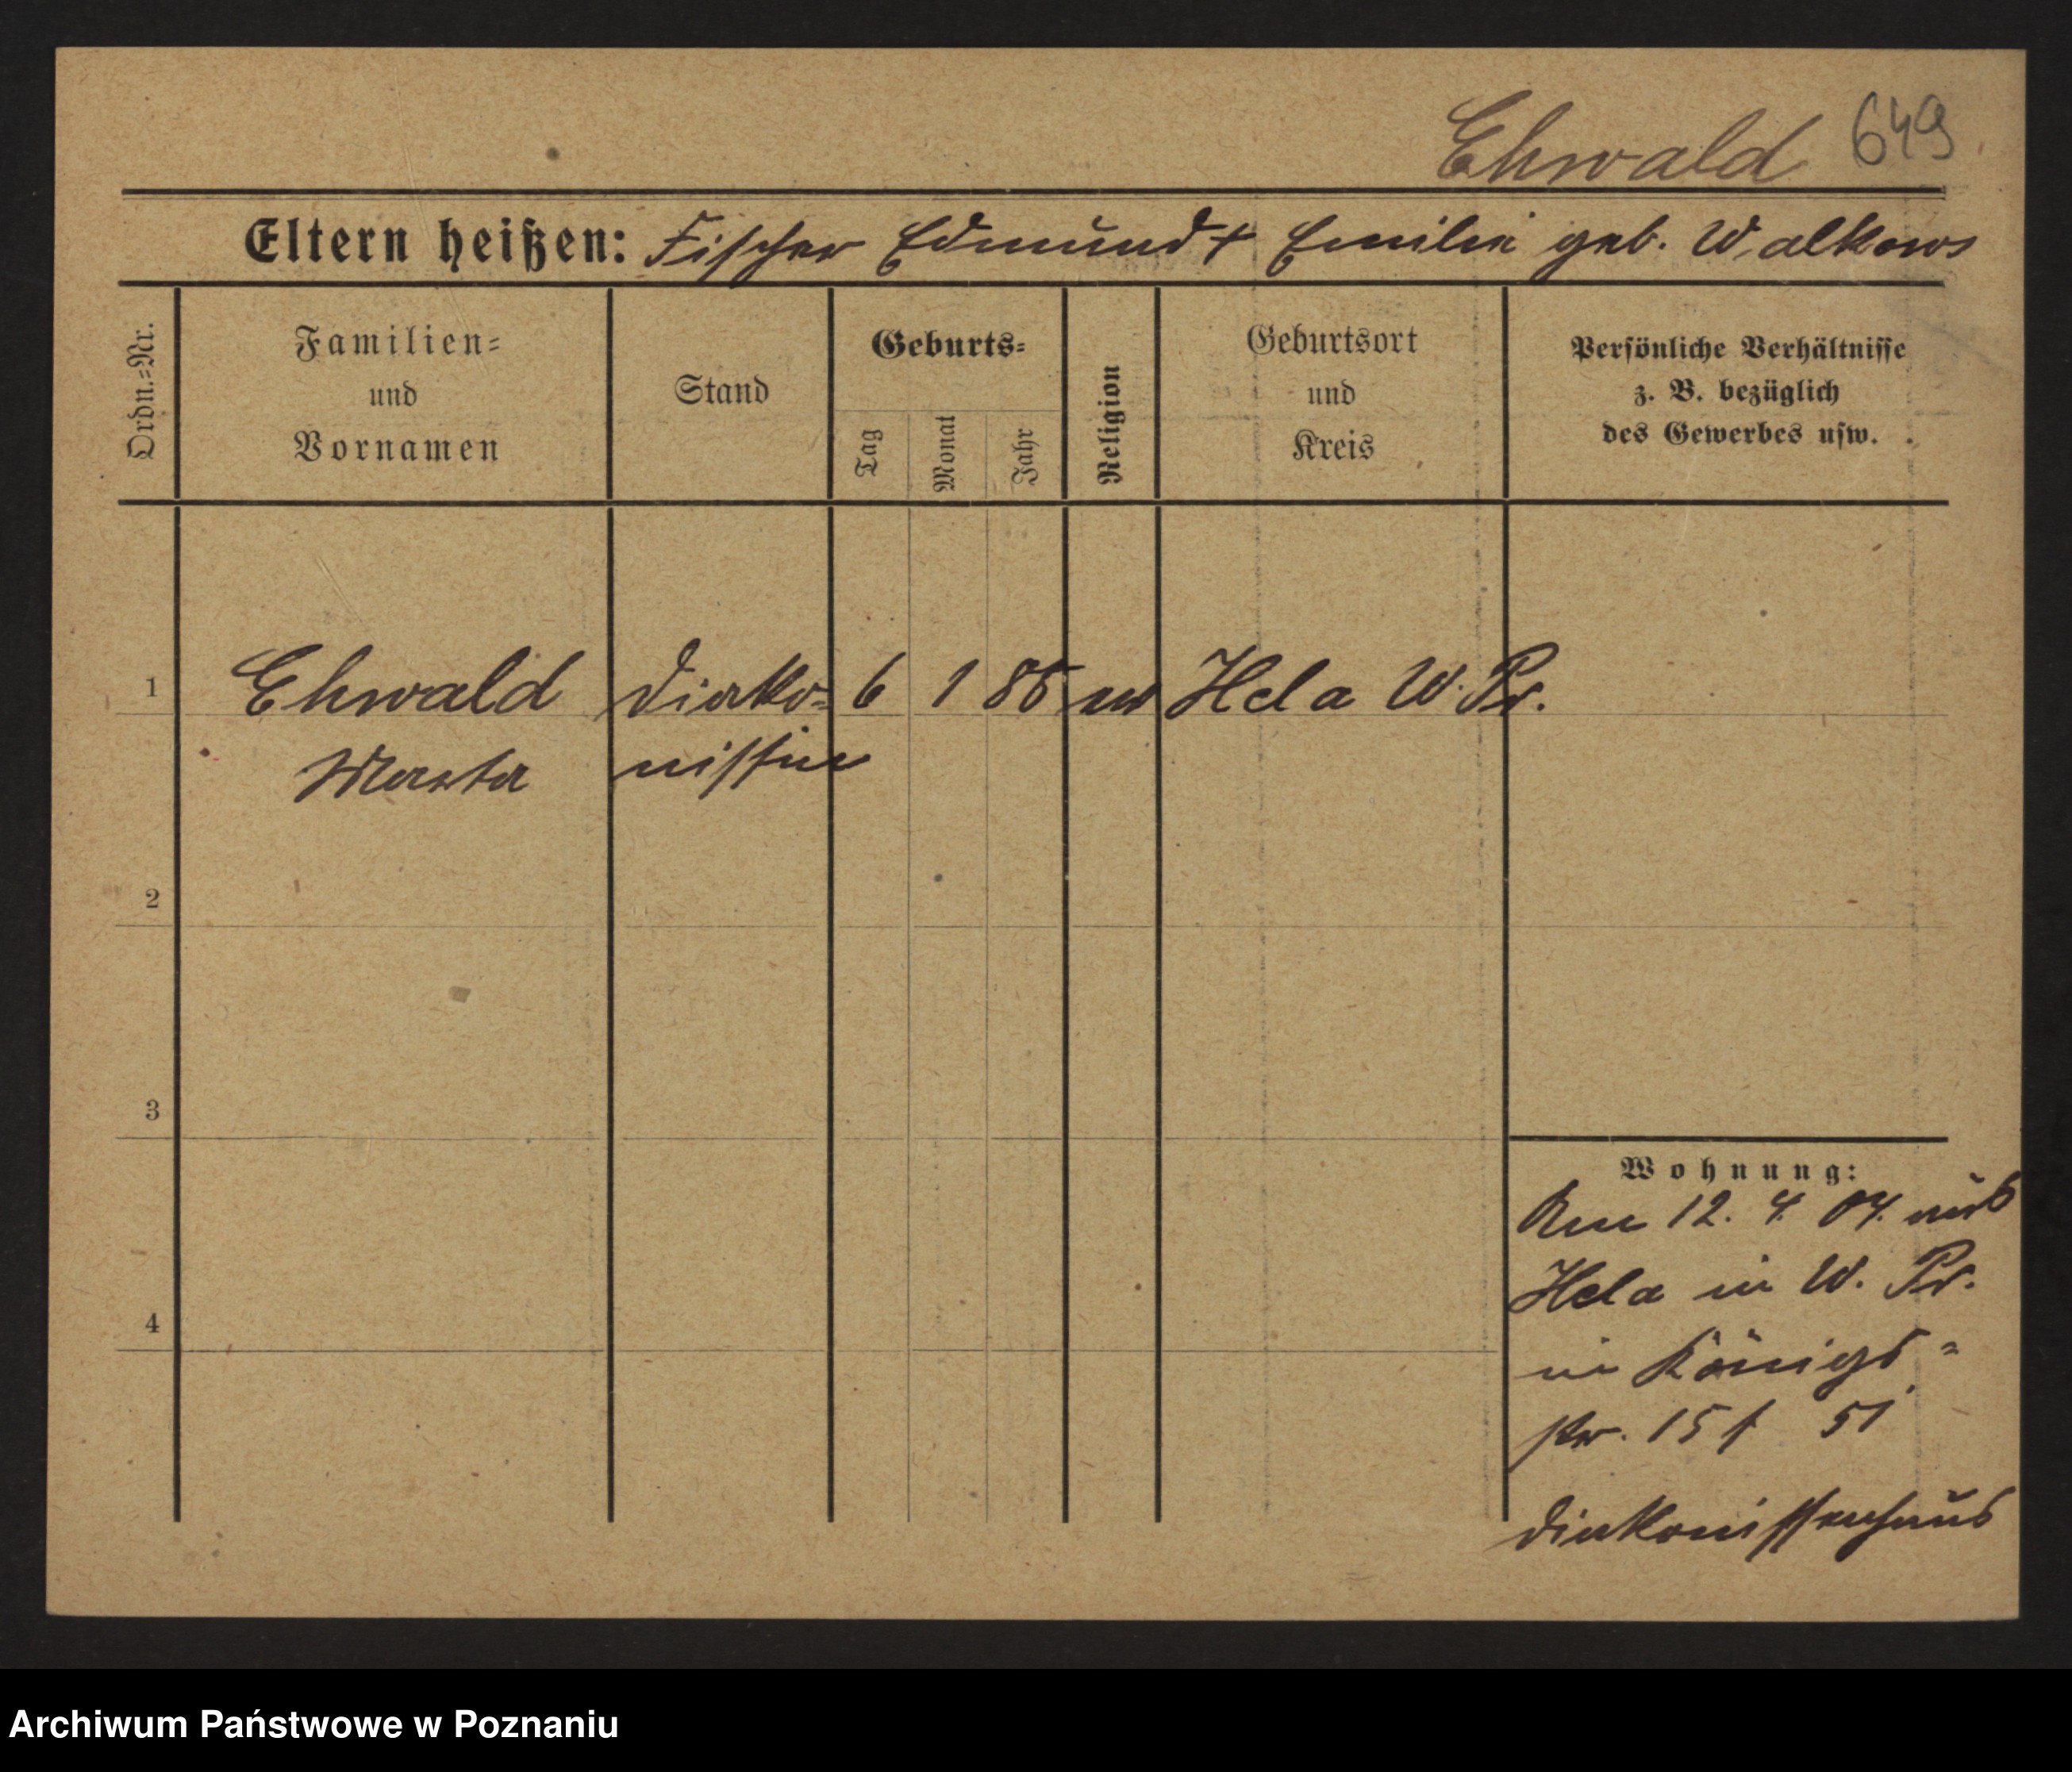 Ehwald 649
Eltern heißen: Fischer Edmund + Emilie geb. Walkows
Ordn.=Nr.
Familien=
und
Vornamen
Stand
Geburts=
Tag
Monat
Jahr
Religion
Geburtsort
und
Kreis
Persönliche Verhältnisse
z. B. bezüglich
des Gewerbes usw.
1 Ehwald Diako= 6 1 86 ev Hela W. Pr.
Marta nissin
2
3
4
Wohnung:
Am 12. 4. 04. aus
Hela in W. Pr.
in Königs=
str. 15 f 51
Diakonissenhaus
Archiwum Państwowe w Poznaniu